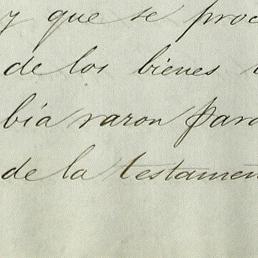 y que se proc
de los bienes
bía raron para
de la testamen